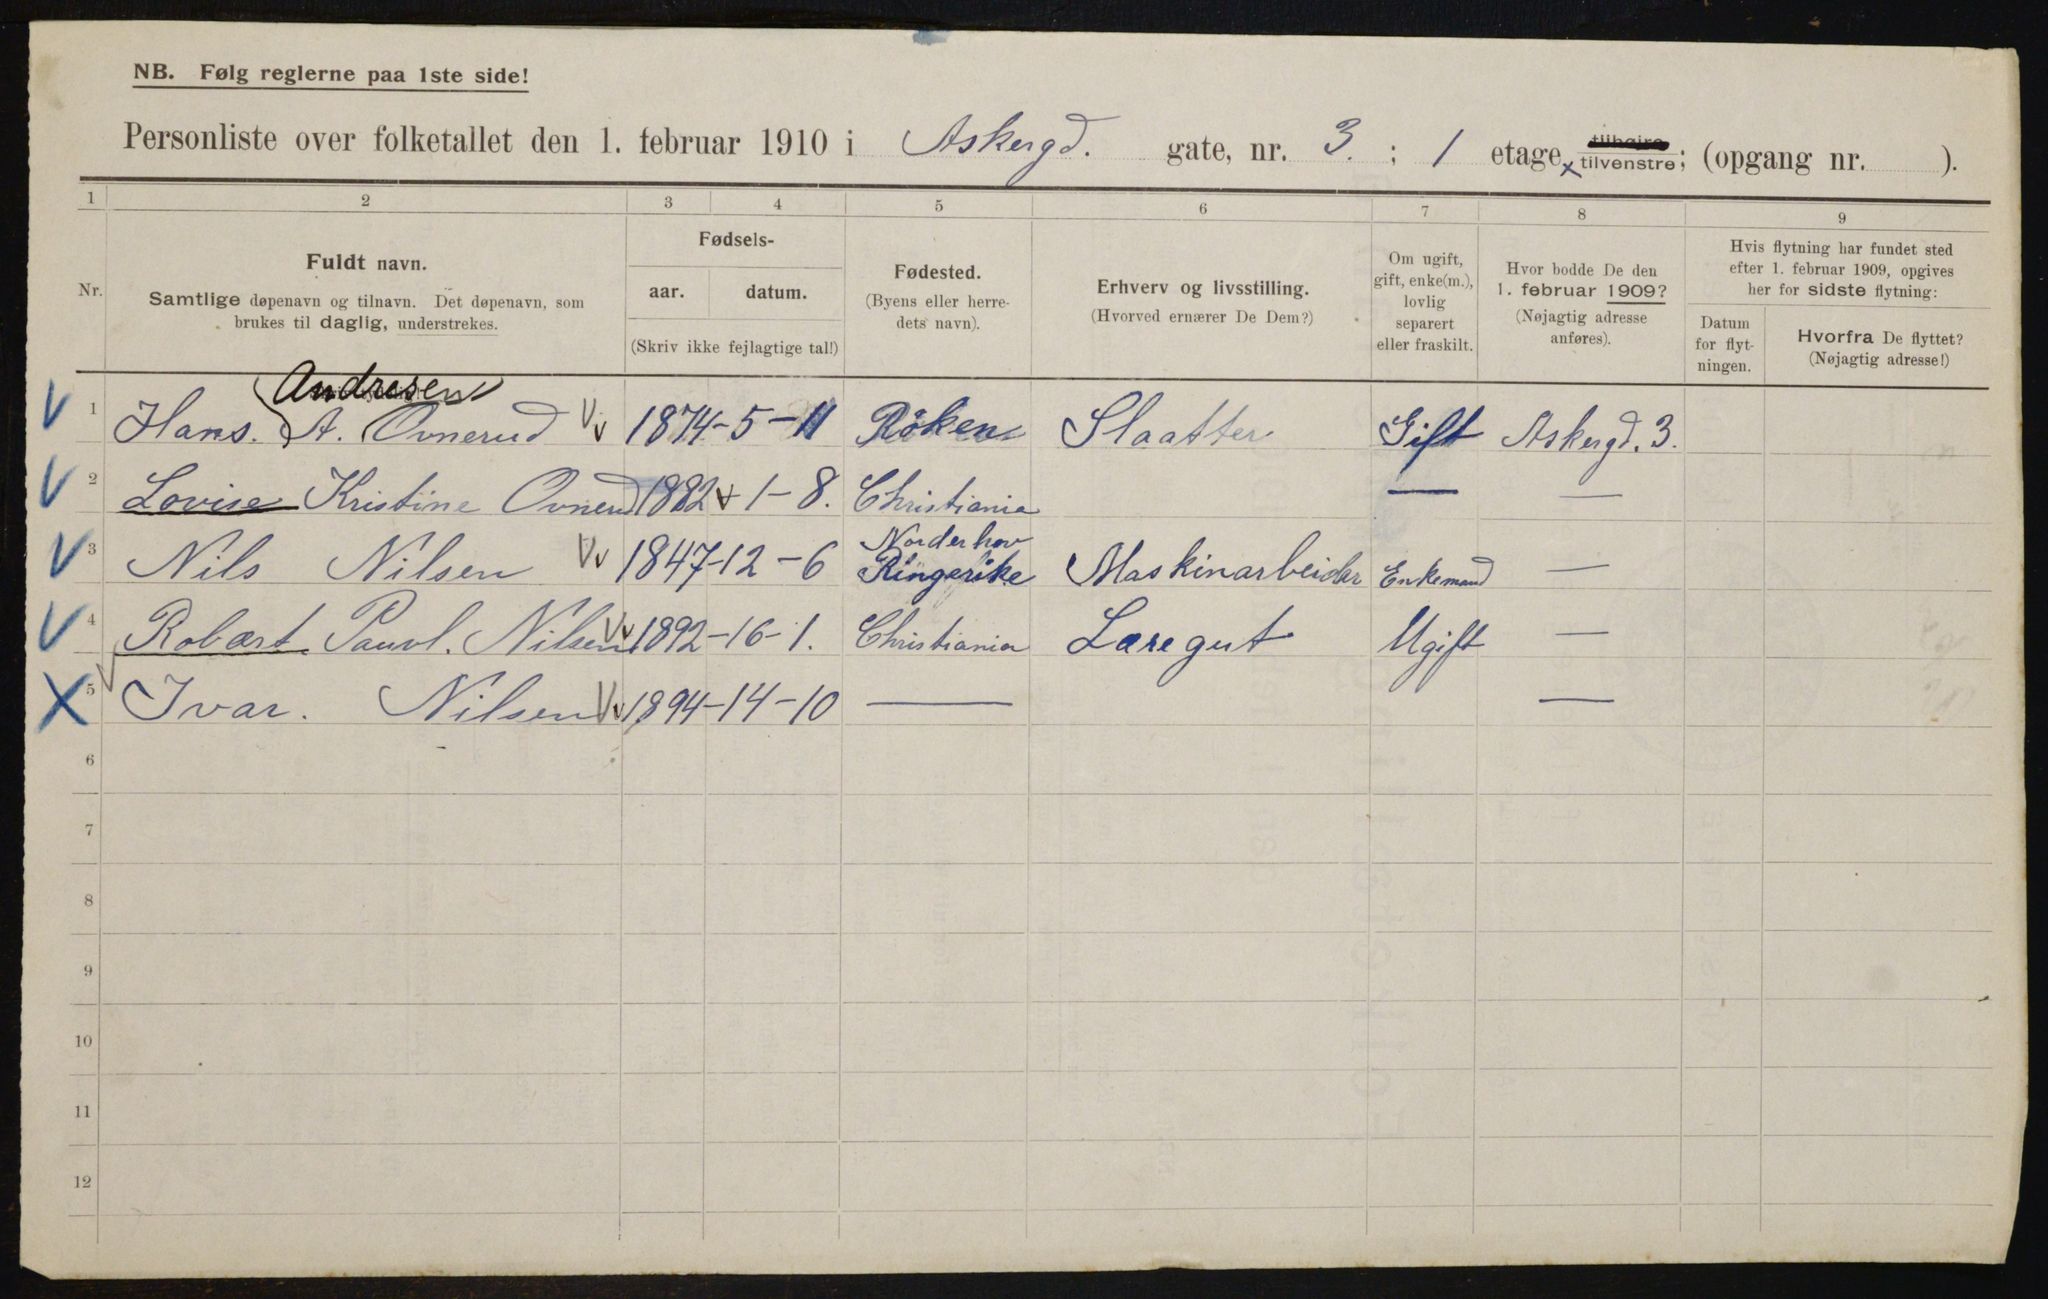 NB. Følg reglerne paa 1ste side!
Personliste over folketallet den 1. februar 1910 i Askergd. gate, nr. 3. ; 1 etage tilhøire x tilvenstre; (opgang nr. ).
1 2 3 4 5 6 7 8 9
Nr.
Fuldt navn.
Samtlige døpenavn og tilnavn. Det døpenavn, som
brukes til daglig, understrekes.
Fødsels-
aar. datum.
(Skriv ikke fejlagtige tal!)
Fødested.
(Byens eller herre-
dets navn).
Erhverv og livsstilling.
(Hvorved ernærer De Dem?)
Om ugift,
gift, enke(m.),
lovlig
separert
eller fraskilt.
Hvor bodde De den
1. februar 1909?
(Nøjagtig adresse
anføres).
Hvis flytning har fundet sted
efter 1. februar 1909, opgives
her for sidste flytning:
Datum
for flyt-
ningen.
Hvorfra De flyttet?
(Nøjagtig adresse!)
Andresen
1 Hans. A. Ovnerud 1874-5-11 Röken Slaatter Gift Askergd. 3.
2 Lovise Kristine Ovnerud 1882-1-8. Christiania — —
Norderhov
3 Nils Nilsen 1847-12-6 Ringerike Maskinarbeider Enkemand —
4 Robært Pauvl. Nilsen 1892-16-1. Christiania Læregut Ugift —
5 Ivar. Nilsen 1894-14-10 — —
6
7
8
9
10
11
12